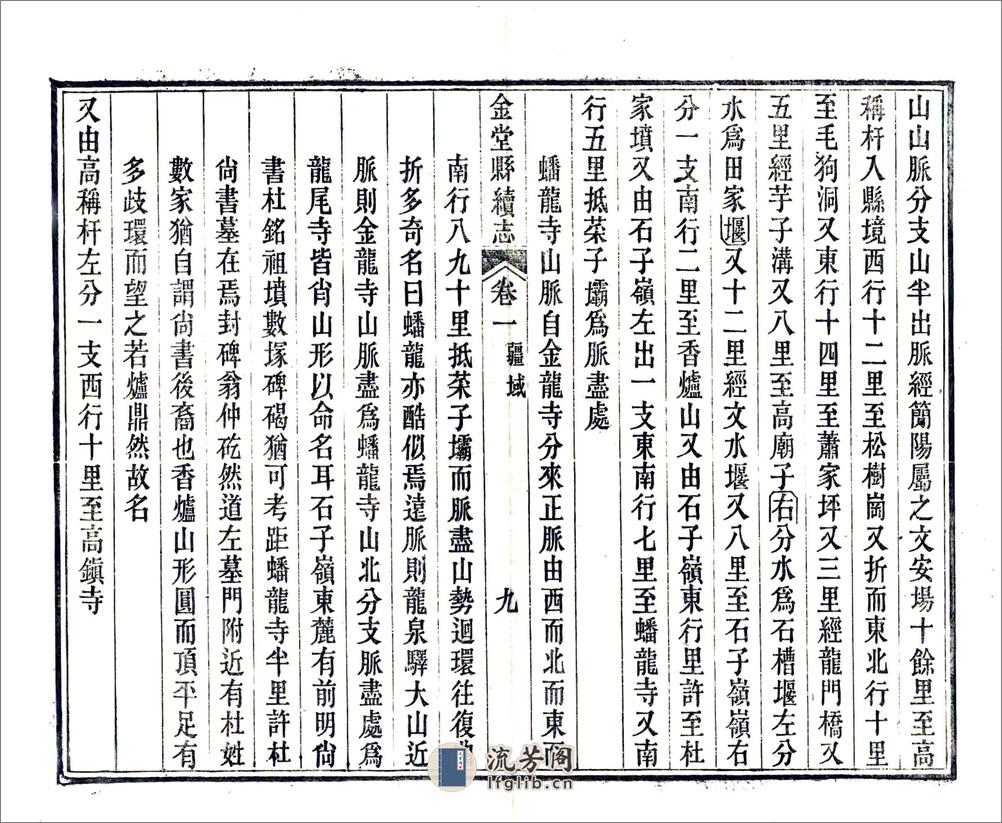 山山脈分支山半出脈經簡陽屬之文安場十餘里至高
稱杆入縣境西行十二里至松樹崗又折而東北行十里
至毛狗洞又東行十四里至蕭家坪又三里經龍門橋又
五里經芋子溝又八里至高廟子右分水爲石槽堰左分
水爲田家堰又十二里經文水堰又八里至石子嶺嶺右
分一支南行二里至香爐山又由石子嶺東行里許至杜
家墳又由石子嶺左出一支東南行七里至蟠龍寺又南
行五里抵荣子壩爲脈盡處
蟠龍寺山脈自金龍寺分來正脈由西而北而東
金堂縣續志 卷一 疆域 九
南行八九十里抵荣子壩而脈盡山勢迴環往復
折多奇名曰蟠龍亦酷似焉遠脈則龍泉驛大山近
脈則金龍寺山脈盡爲蟠龍寺山北分支脈盡處爲
龍尾寺皆肖山形以命名耳石子嶺東麓有前明尙
書杜銘祖墳數塚碑碣猶可考距蟠龍寺半里許杜
尙書墓在焉封碑翁仲矻然道左墓門附近有杜姓
數家猶自謂尙書後裔也香爐山形圓而頂平足有
多歧環而望之若爐鼎然故名
又由高稱杆左分一支西行十里至高鎭寺
流芳阁
lfglib.cn